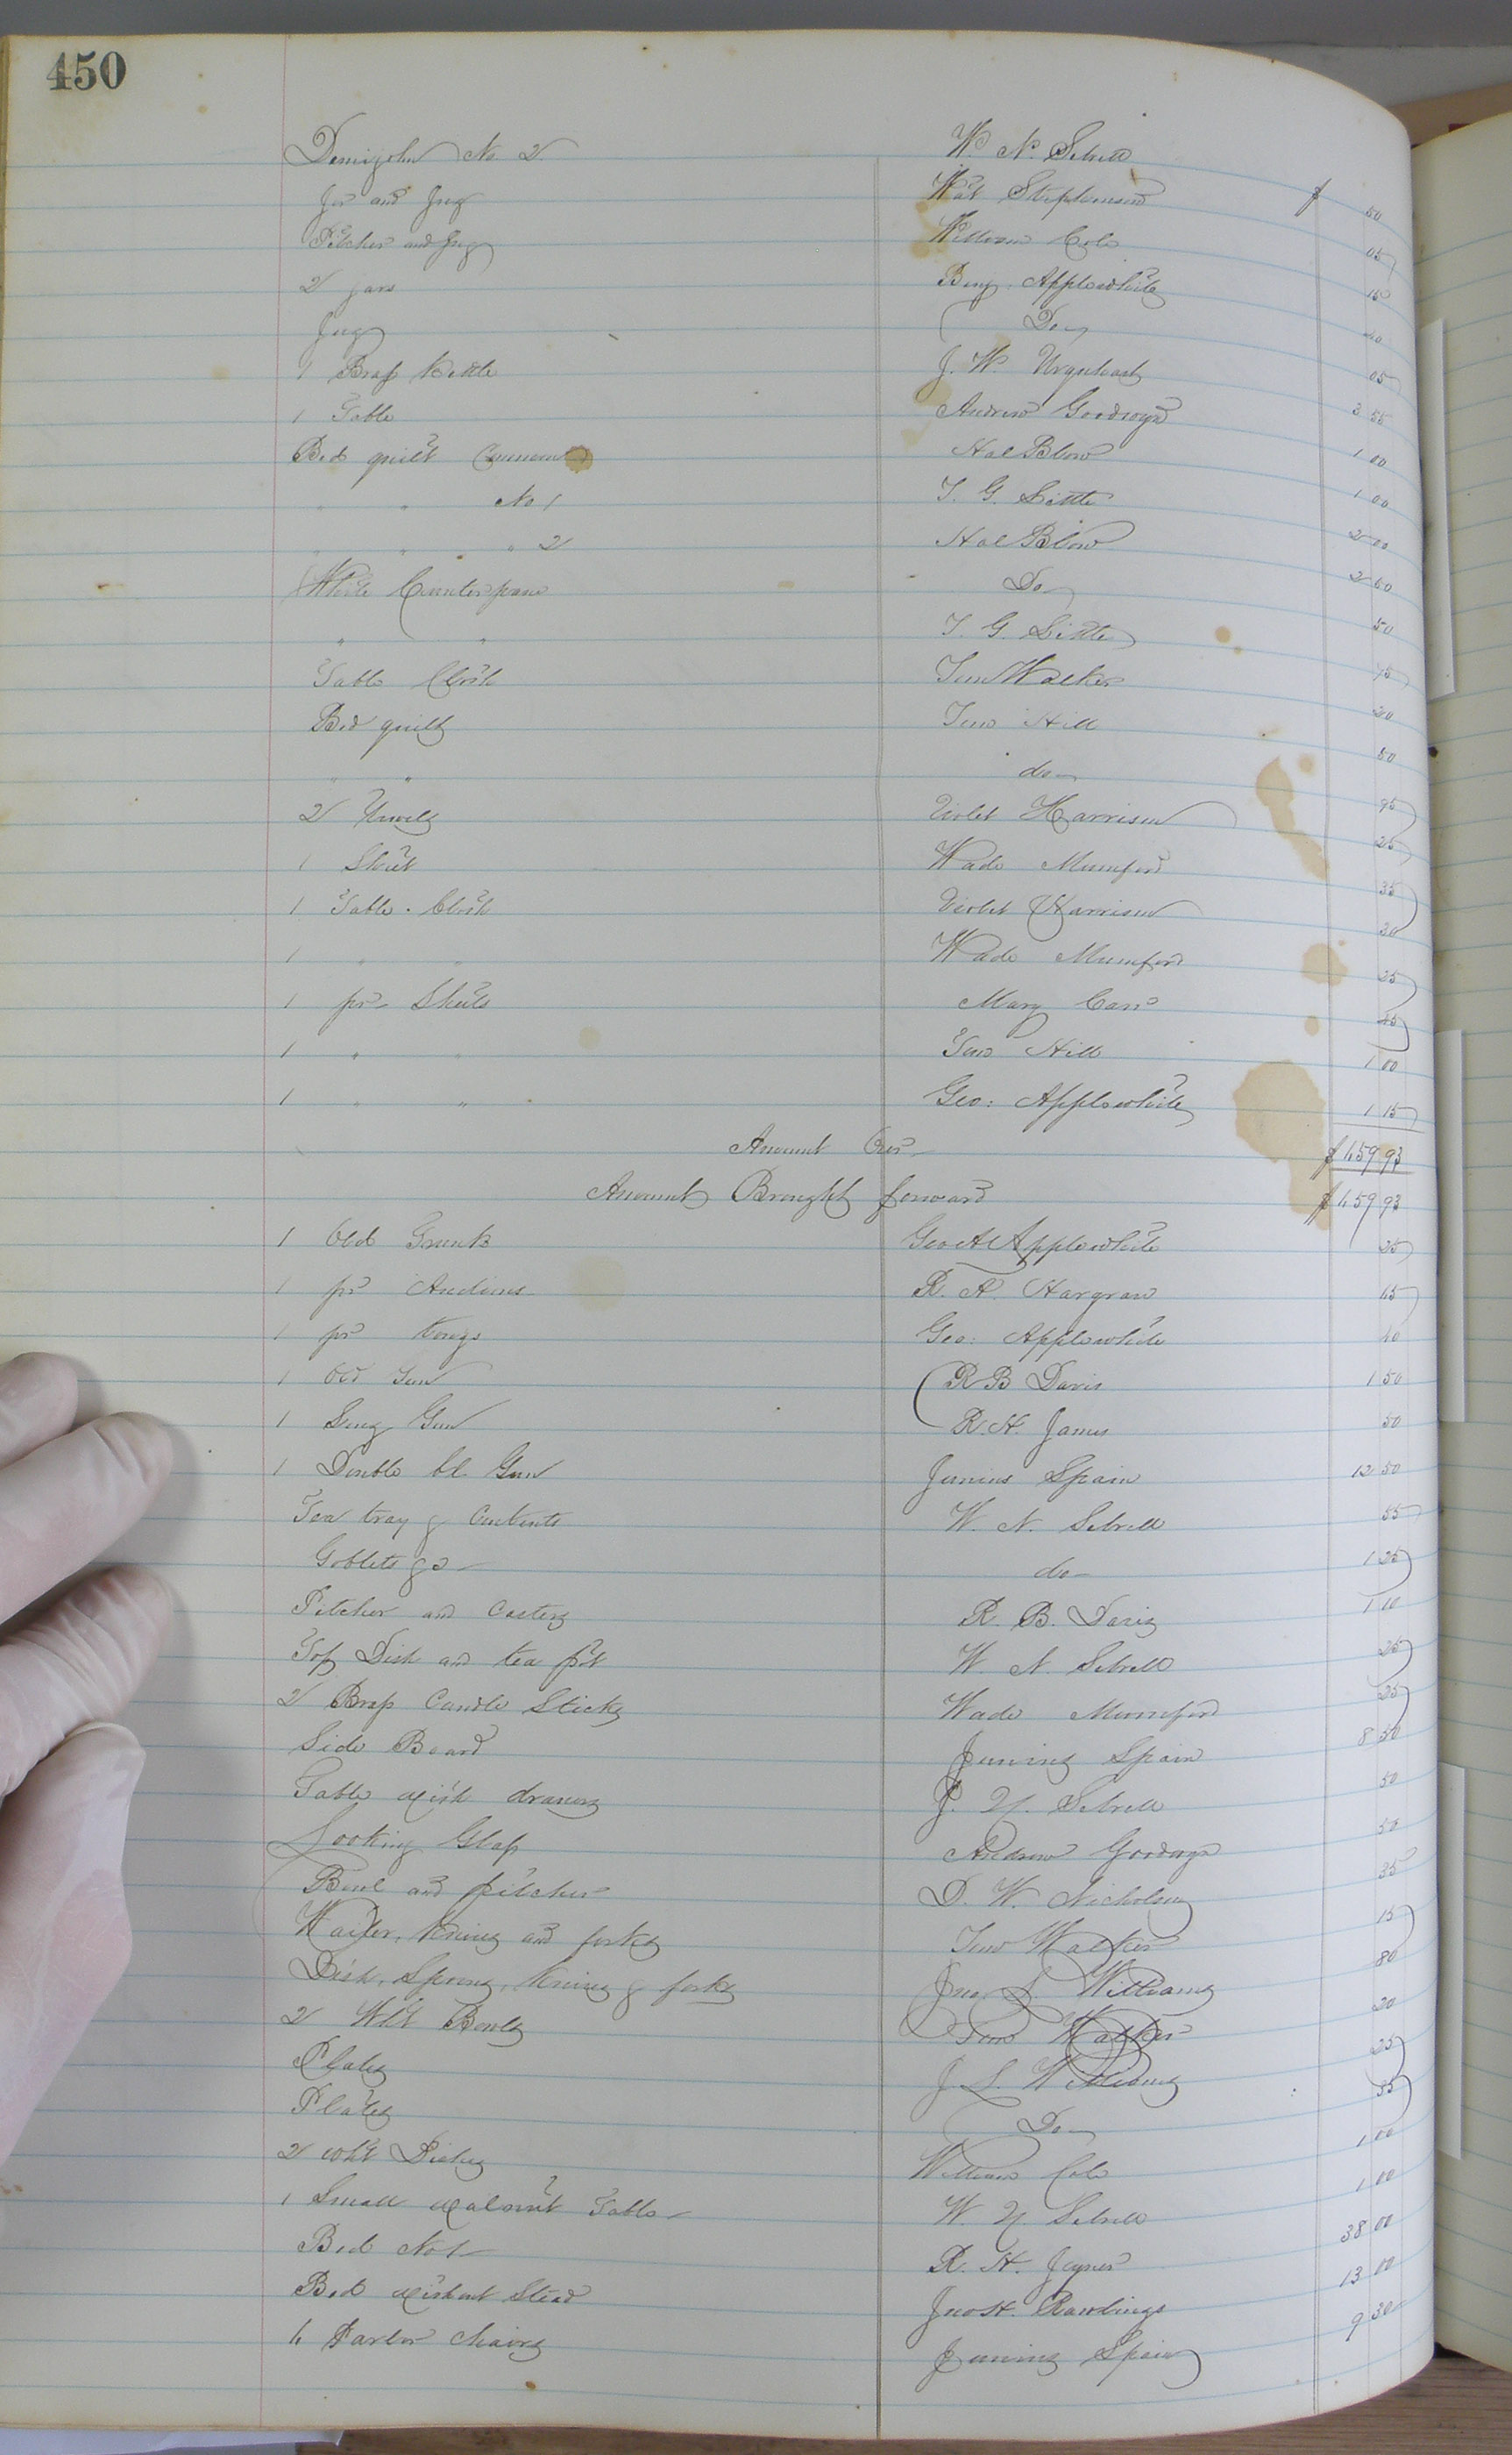 450
Demijohn No. 2 W. N. Sebrell $ 50
Jar and Jug Wat Stephenson 05
Pitcher and Jug William Cole 15
2 jars Benj. Applewhite 20
Jug Do 05
1 Brass Kettle J. W. Urquhart 3 55
1 Table Andrew Goodwyn 1 00
Bed quilt Common Hal Blow 1 00
" " No 1 T. G. Little 2 00
" " " 2 Hal Blow 2 60
White Counterpane Do 50
" " T. G. Little 75
Table Cloth Tom Walker 20
Bed quilt Tom Hill 50
" " do 95
2 Towels Violet Harrison 25
1 Sheet Wade Mumford 35
1 Table Cloth Violet Harrison 30
1 " " Wade Mumford 25
1 pr Sheets Mary Carr
1 " " Tom Hill 1 00
1 " " Geo: Applewhite 1 15
Amount Over $459 93
Amount Brought forward $459 93
1 Old Trunk Geo A Applewhite 25
1 pr Andirons R. A. Hargrave 45
1 pr tongs Geo: Applewhite 40
1 Old Gun R B Davis 1 50
1 Long Gun R. H. James 50
1 Double bl Gun Junius Spain 12 50
Tea tray & Contents W. N. Sebrell 55
Goblets &c do 1 25
Pitcher and Casters R. B. Davis 1 10
Top Dish and tea pot W. N. Sebrell 25
2 Brass Candle Sticks Wade Mumford 25
Side Board Junius Spain 8 50
Table with drawers J. N. Sebrell 50
Looking Glass Andrew Goodwyn 50
Bowl and pitcher D. W. Nicholson 35
Waiter, Knives and forks Tom Walker 15
Dish, Spoons, Knives & forks Jno. L. Williams 80
2 Wht Bowls Tom Walker 20
Plates J L. Williams 25
Plates Do 55
2 wht Dishes William Cole 1 00
1 Small walnut Table W. N. Sebrell 1 00
Bed No 1 R. H. Joyner 38 00
Bed without Stead Jno H. Rawlings 13 00
6 Parlor Chairs Junius Spain 9 30